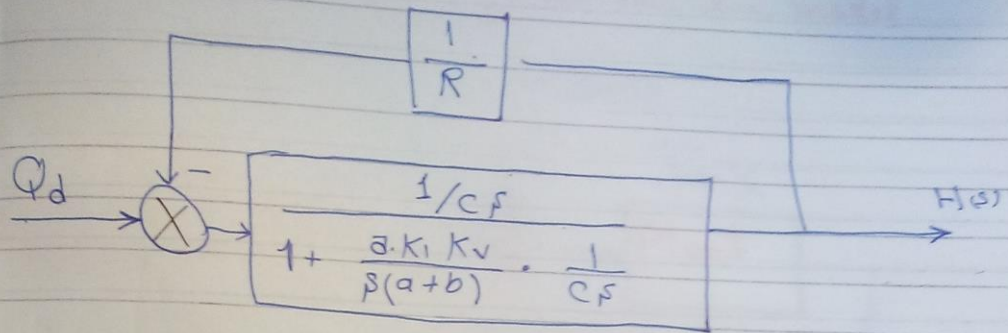 1
R
Qd
−
1/cs
1+ a.K1 Kv
s(a+b)
. 1
cs
H(s)